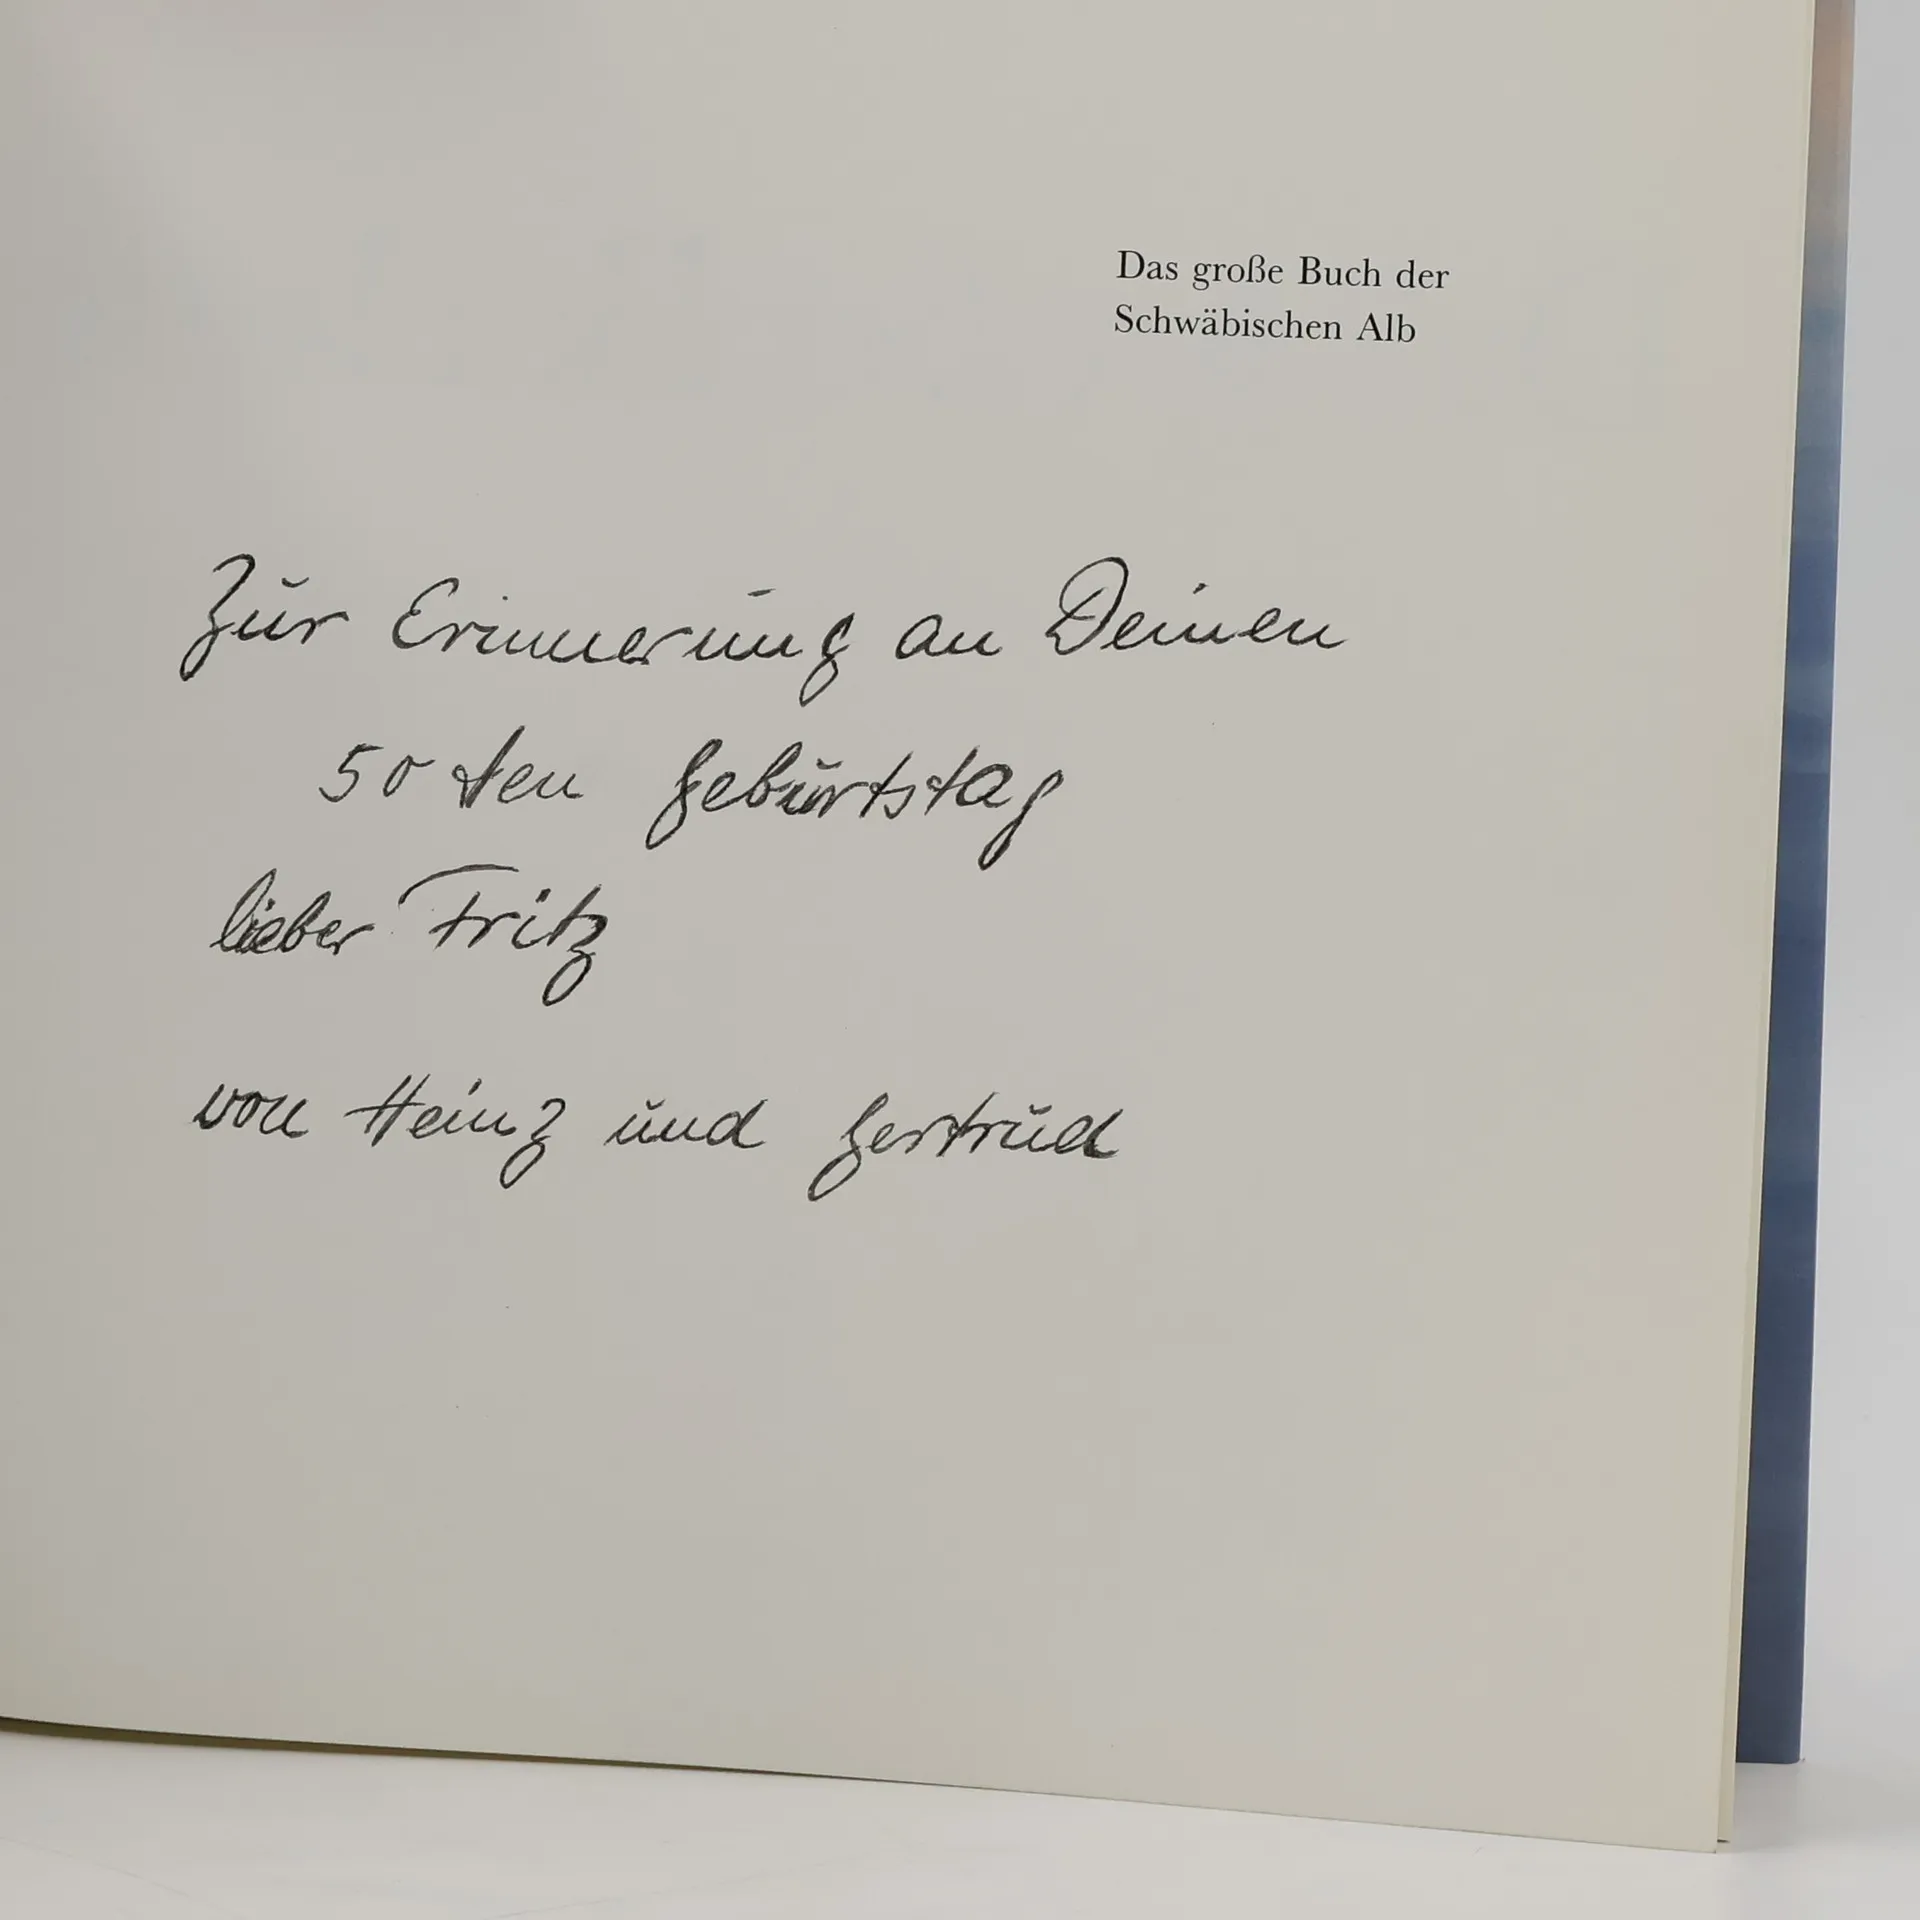 Das große Buch der
Schwäbischen Alb
Zur Erinnerung an Deinen
50ten Geburtstag
lieber Fritz
von Heinz und Gertrud